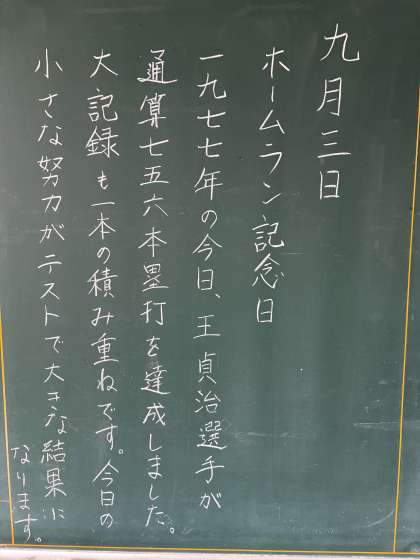 九月三日
ホームラン記念日
一九七七年の今日、王貞治選手が
通算七五六本塁打を達成しました。
大記録も一本の積み重ねです。今日の
小さな努力がテストで大きな結果に
なります。